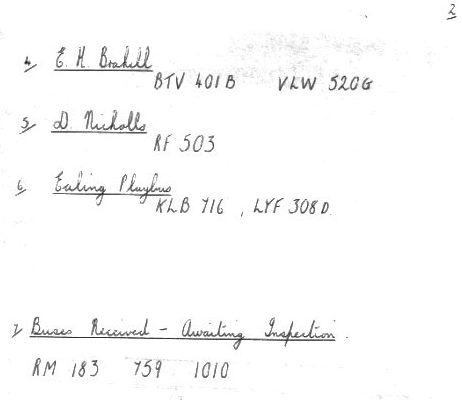 2
4, E. H. Brakell
BTV 401B VLW 520G
5, D. Nicholls
RF 503
6, Ealing Playbus
KLB 716 , LYF 308D
7, Buses Received - Awaiting Inspection.
RM 183 759 1010